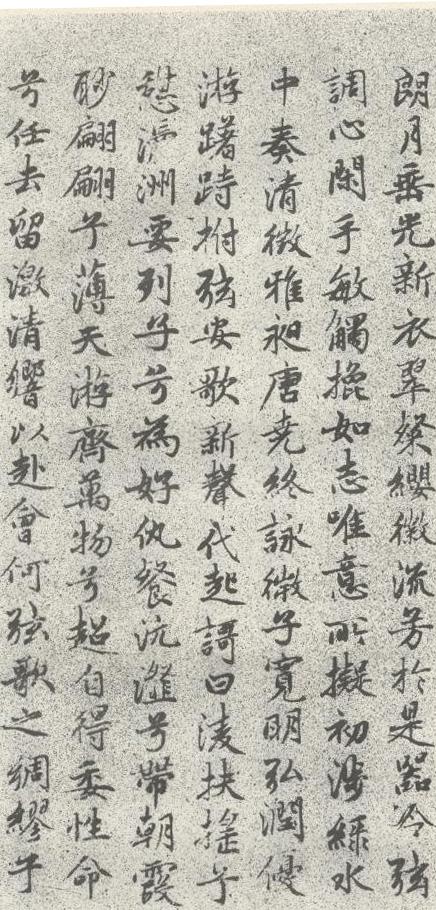 朗月垂光新衣翠粲纓徽流芳於是器冷弦
調心閑手敏觸攙如志唯意所擬初涉綠水
中奏清徵雅昶唐堯終詠微子寬明弘潤優
游躇跱拊弦安歌新聲代起謌曰淩扶搖兮
憩瀛洲要列子兮為好仇餐沆瀣兮帶朝霞
眇翩翩兮薄天游齊萬物兮超自得委性命
兮任去留激清響以赴會何弦歌之綢繆于